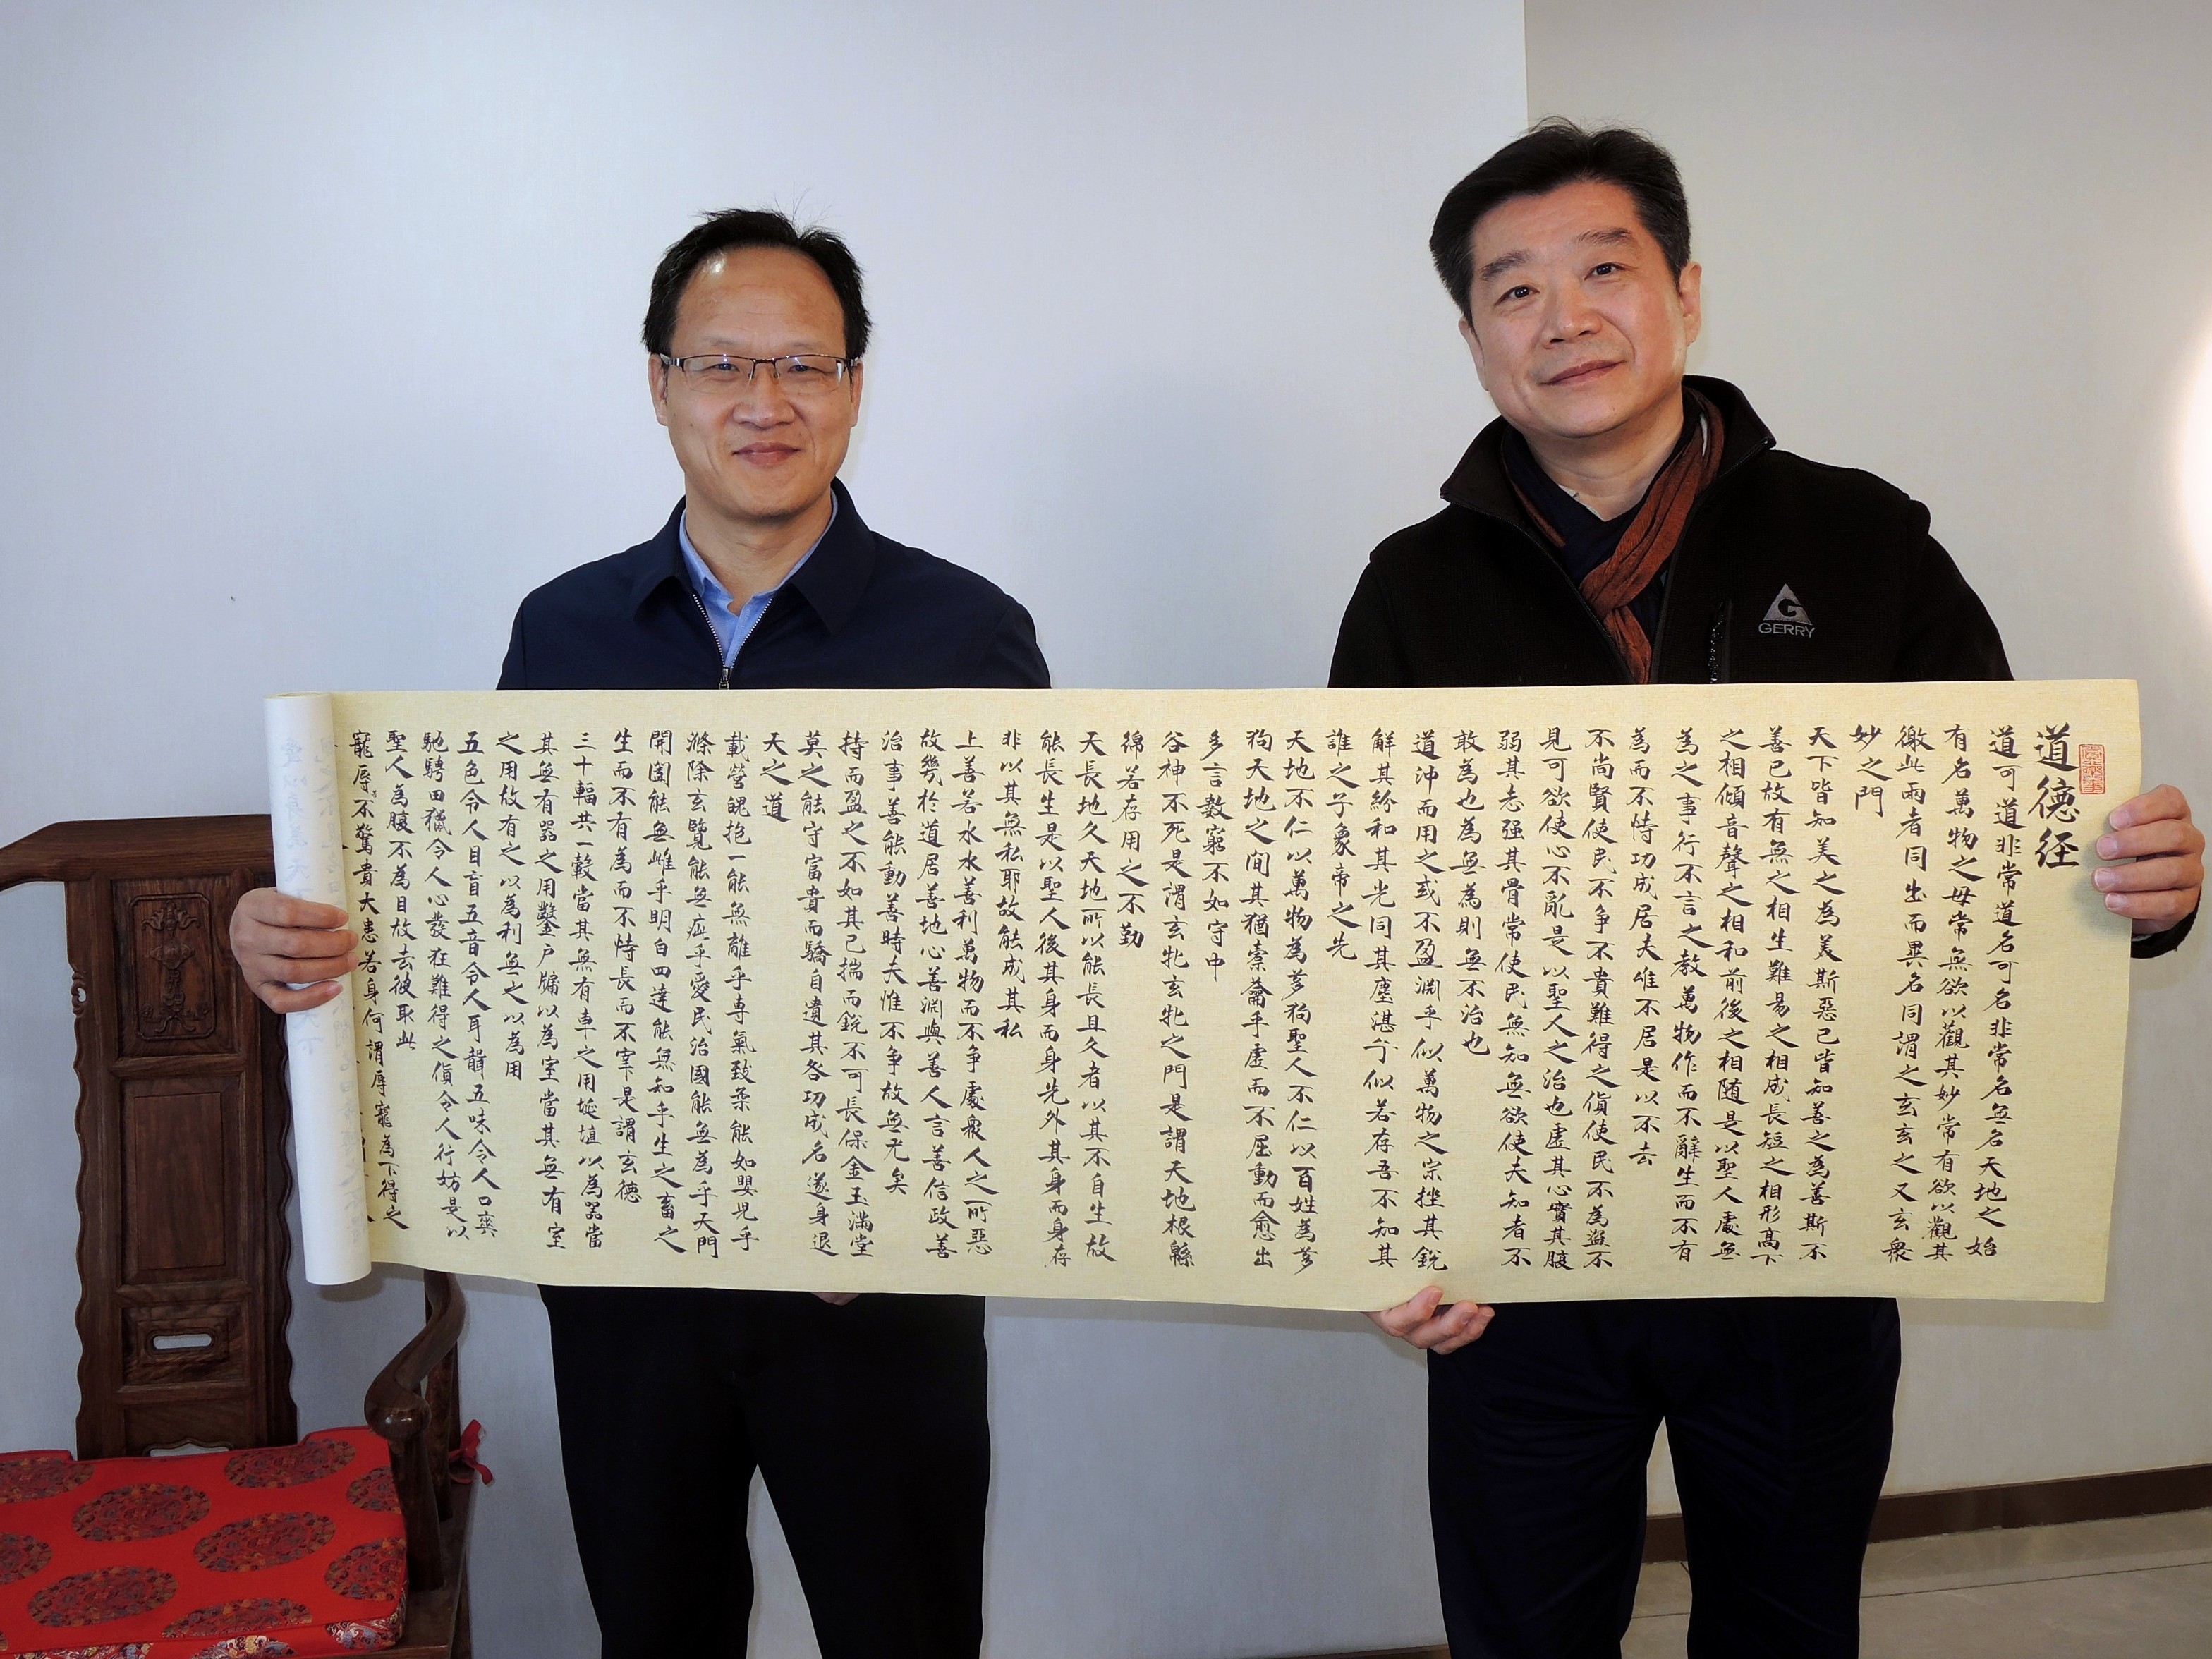 道德经
道可道非常道名可名非常名無名天地之始
有名萬物之母常無欲以觀其妙常有欲以觀其
徼此兩者同出而異名同謂之玄玄之又玄衆
妙之門
天下皆知美之為美斯惡已皆知善之為善斯不
善已故有無之相生難易之相成長短之相形高下
之相傾音聲之相和前後之相随是以聖人處無
為之事行不言之教萬物作而不辭生而不有
為而不恃功成居夫唯不居是以不去
不尚賢使民不争不貴難得之貨使民不為盜不
見可欲使心不亂是以聖人之治也虛其心實其腹
弱其志强其骨常使民無知無欲使夫知者不
敢為也為無為則無不治也
道沖而用之或不盈淵乎似萬物之宗挫其銳
解其紛和其光同其塵湛兮似若存吾不知其
誰之子象帝之先
天地不仁以萬物為芻狗聖人不仁以百姓為芻
狗天地之间其猶橐籥乎虛而不屈動而愈出
多言數窮不如守中
谷神不死是謂玄牝玄牝之門是謂天地根綿
綿若存用之不勤
天長地久天地所以能長且久者以其不自生故
能長生是以聖人後其身而身先外其身而身存
非以其無私耶故能成其私
上善若水水善利萬物而不争處衆人之所惡
故幾於道居善地心善淵與善人言善信政善
治事善能動善時夫惟不争故無尤矣
持而盈之不如其已揣而銳不可長保金玉滿堂
莫之能守富貴而驕自遺其咎功成名遂身退
天之道
載營魄抱一能無離乎専氣致柔能如嬰児乎
滌除玄覽能無疵乎愛民治國能無為乎天門
開闔能無雌乎明白四達能無知乎生之畜之
生而不有為而不恃長而不宰是謂玄德
三十輻共一轂當其無有車之用埏埴以為器當
其無有器之用鑿户牖以為室當其無有室
之用故有之以為利無之以為用
五色令人目盲五音令人耳聾五味令人口爽
馳騁田獵令人心發狂難得之貨令人行妨是以
聖人為腹不為目故去彼取此
寵辱若不驚貴大患若身何謂辱寵為下得之
GERRY